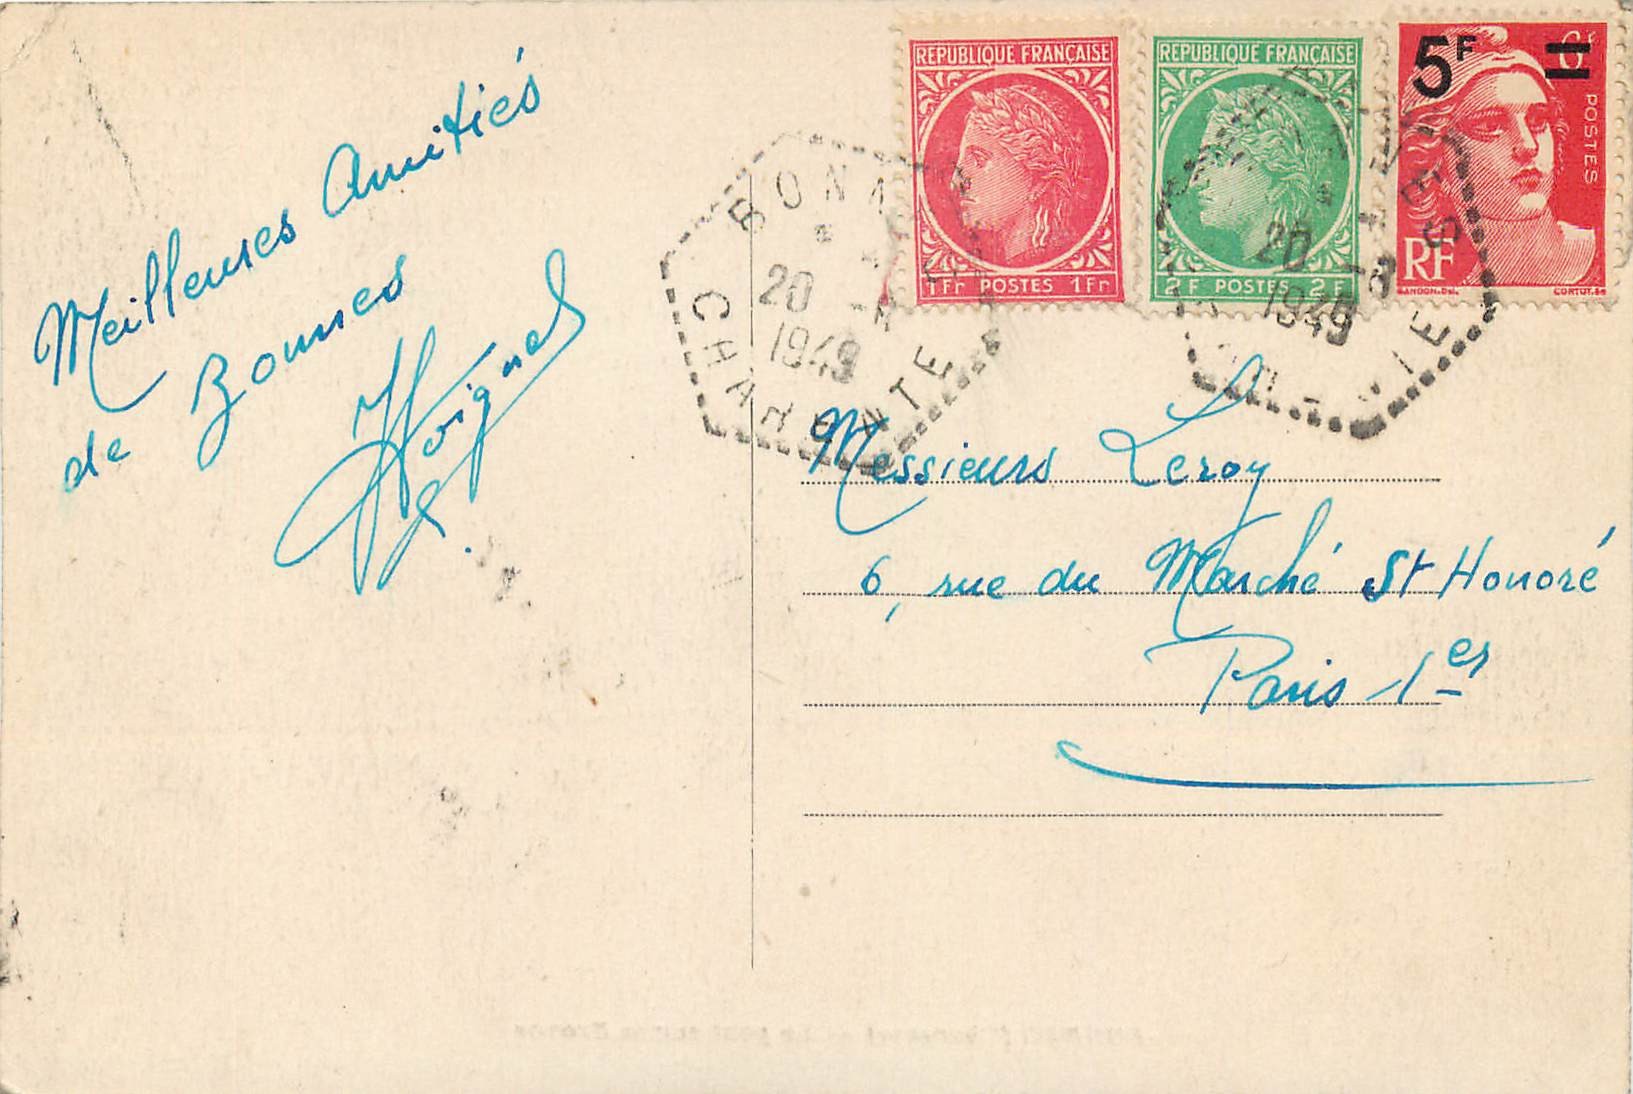 Meilleures Amitiés
de Bonnes
REPUBLIQUE FRANÇAISE
1Fr POSTES 1Fr
REPUBLIQUE FRANÇAISE
2F POSTES 2F
5F
6F
POSTES
RF
GANDON.Del.
CORTOT.Sc
BONNES
20 -8
1949
CHARENTE
BONNES
20 -8
1949
CHARENTE
Messieurs Leroy
6, rue du Marché St Honoré
Paris -1er